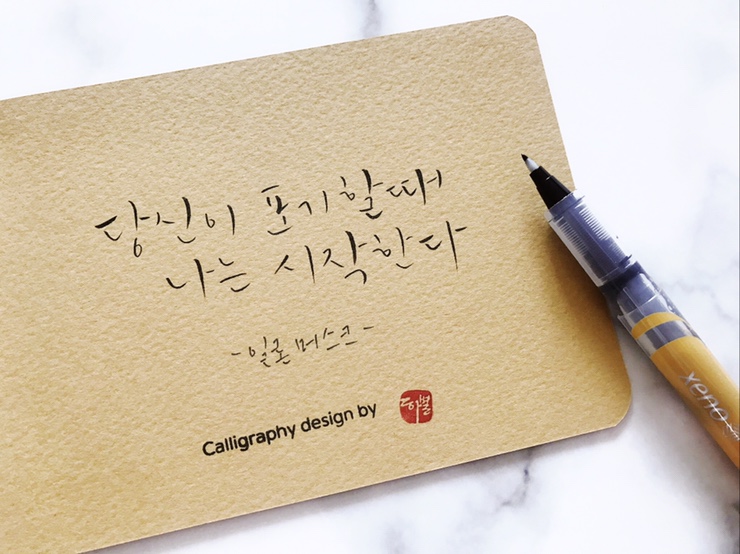 당신이 포기할때
나는 시작한다
-일론 머스크-
Calligraphy design by
xeno